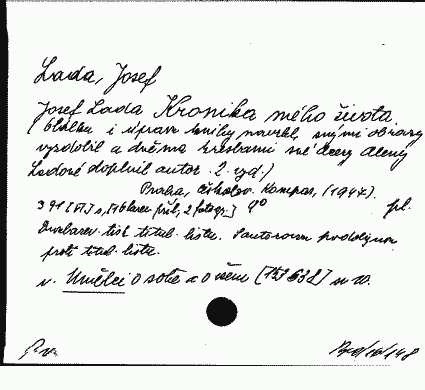 Lada, Josef
Josef Lada Kronika mého života.
(Obálku i úpravu knihy navrhl, svými obrazy
vyzdobil a dvěma kresbami své dcery Aleny
Ladové doplnil autor. 2. vyd.)
Praha, Českoslov. Kompas, (1947).
391 [VI] s, 4° pl.
Dvoubarev. tisk titul. listu. S autorovou podobiznou
proti titul. listu.
v. Umělci o sobě a o všem